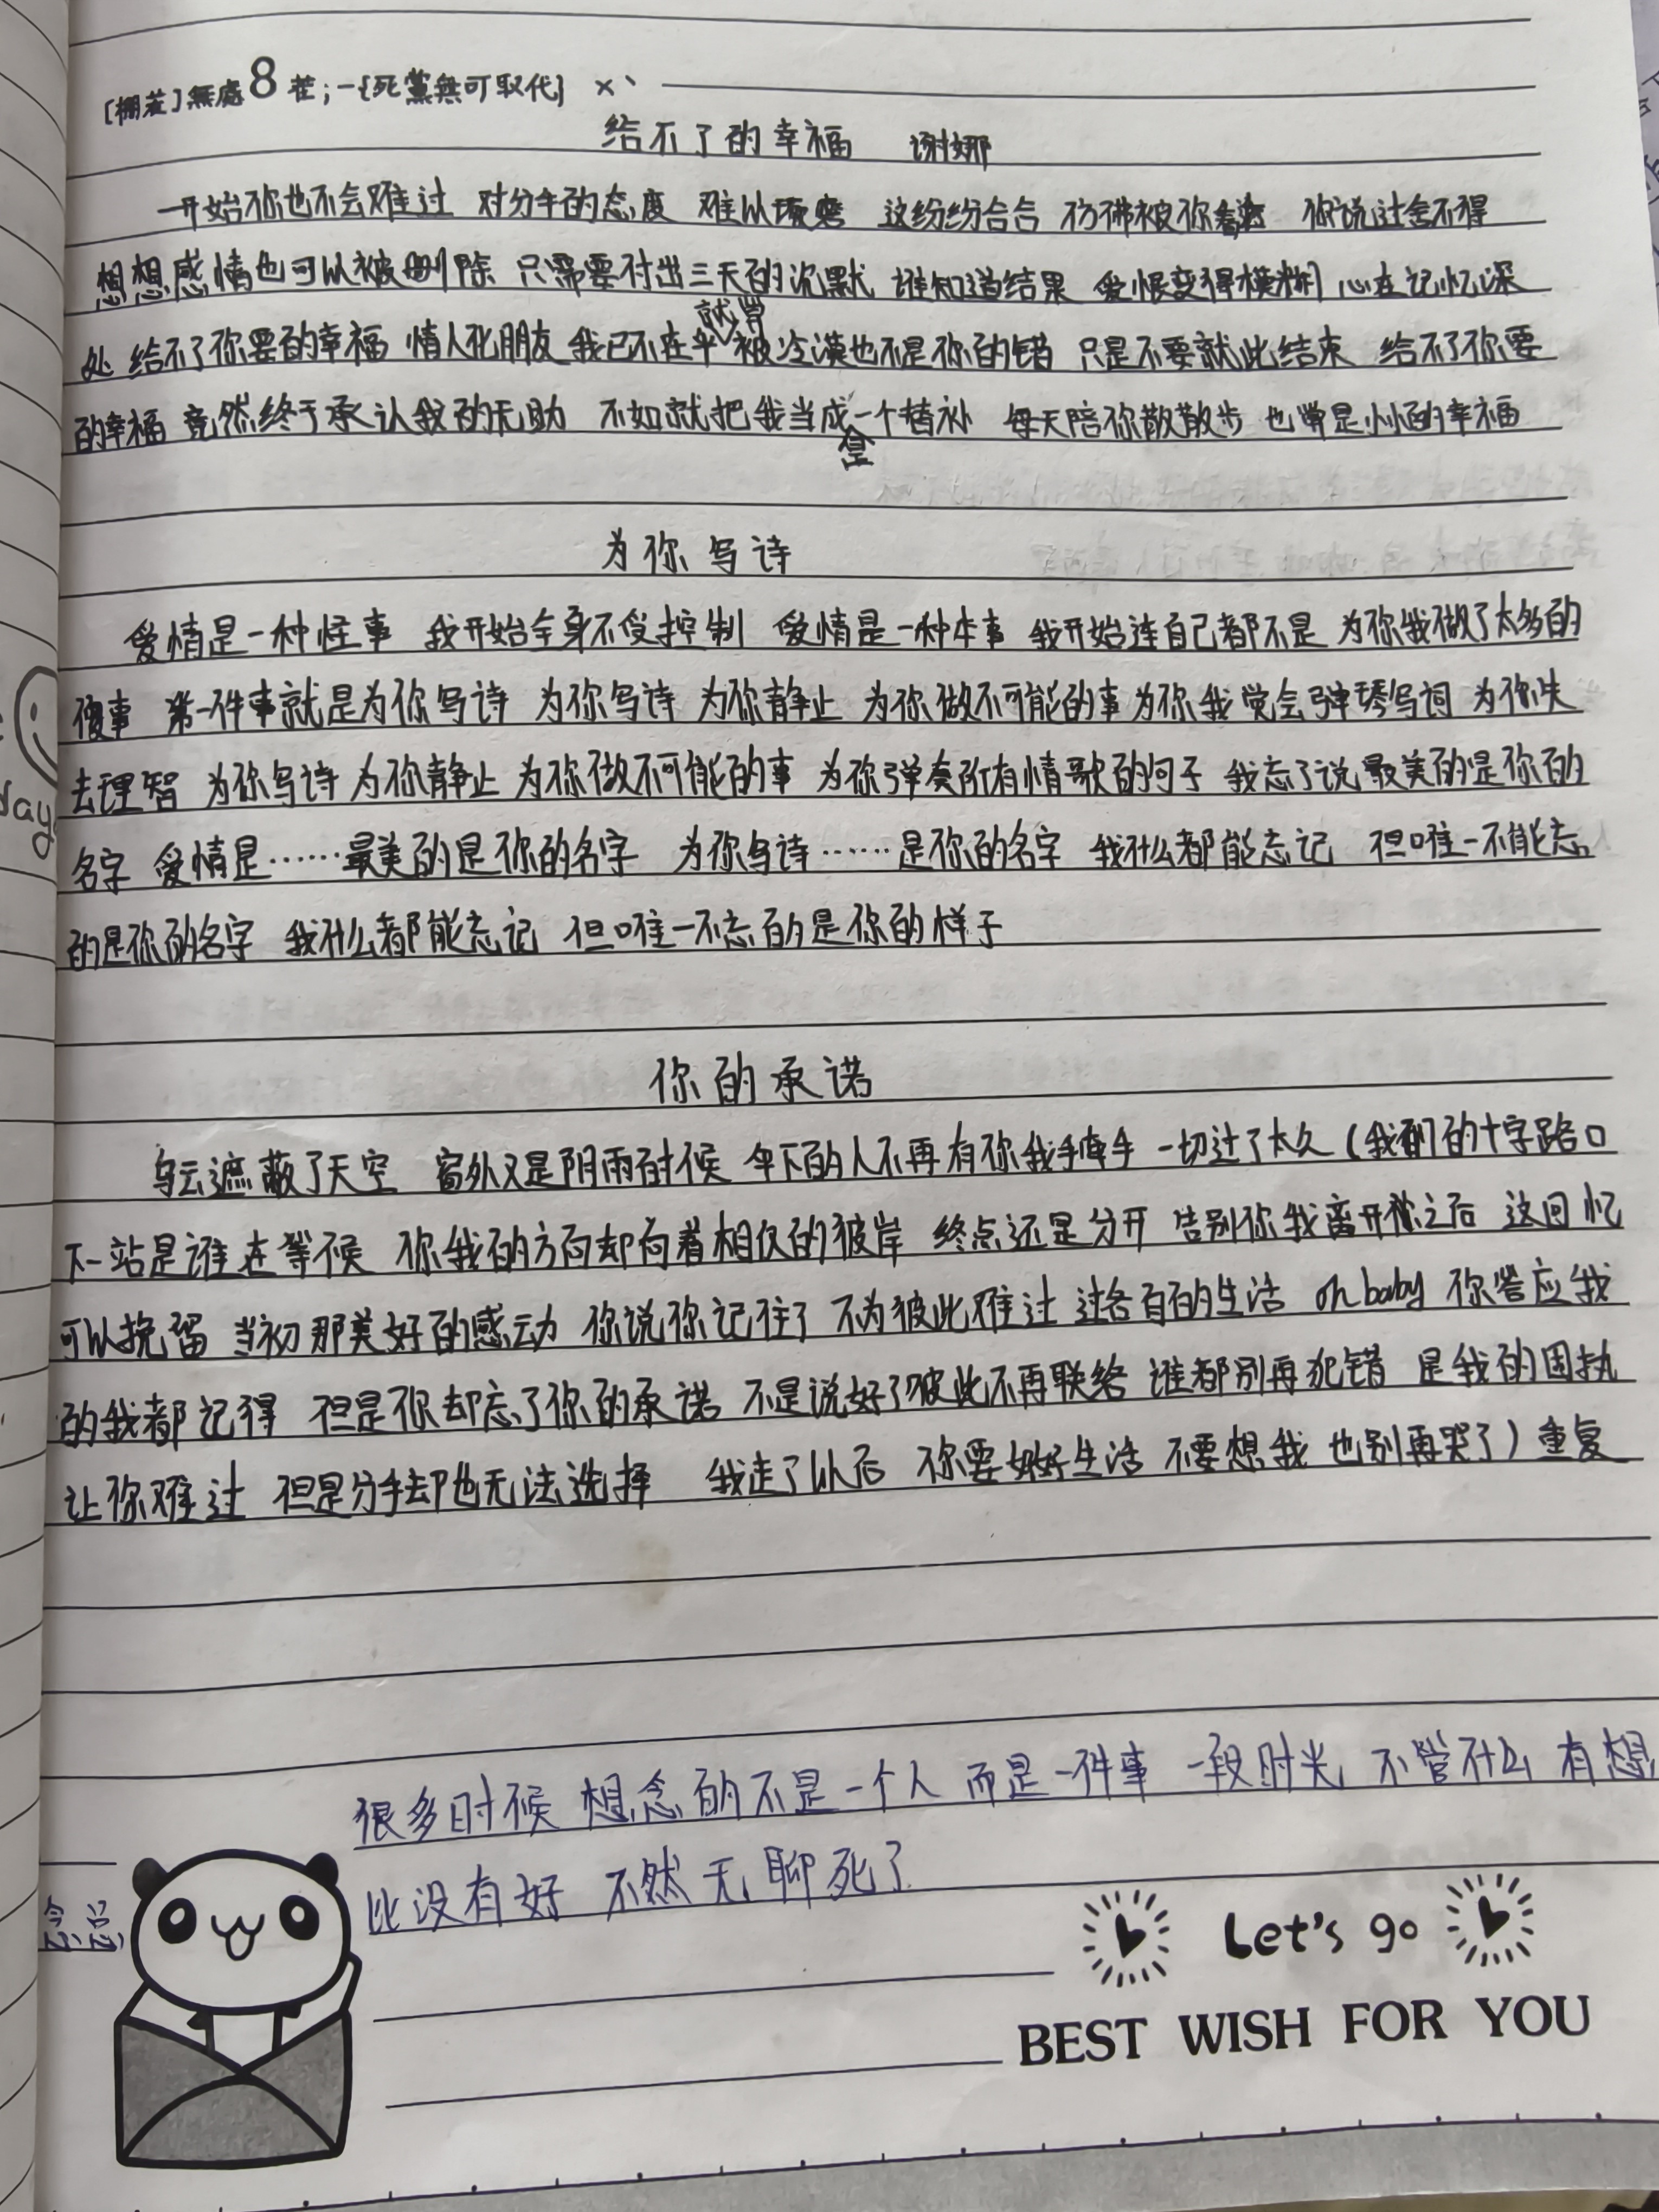 [棚茬]無處8茬;一{死黨無可取代} ×、
给不了的幸福 谢娜
一开始你也不会难过 对分手的态度 难以琢磨 这纷纷合合 仿佛被你看透 你说过舍不得
想想感情也可以被删除 只需要付出三天的沉默 谁知道结果 爱恨变得模糊 心在记忆深
就算
处 给不了你要的幸福 情人化朋友 我已不在乎 被冷漠也不是你的错 只是不要就此结束 给不了你要
的幸福 竟然终于承认我的无助 不如就把我当成一个替补 每天陪你散散步 也算是小小的幸福
为你写诗
爱情是一种怪事 我开始全身不受控制 爱情是一种本事 我开始连自己都不是 为你我做了太多的
傻事 第一件事就是为你写诗 为你写诗 为你静止 为你做不可能的事 为你我觉会弹琴写词 为你失
去理智 为你写诗 为你静止 为你做不可能的事 为你弹奏所有情歌的句子 我忘了说 最美的是你的
名字 爱情是……最美的是你的名字 为你写诗……是你的名字 我什么都能忘记 但唯一不能忘
的是你的名字 我什么都能忘记 但唯一不忘的是你的样子
你的承诺
乌云遮蔽了天空 窗外又是阴雨时候 伞下的人不再有你我手牵手 一切过了太久(我们的十字路口
下一站是谁在等候 你我的方向却向着相似的彼岸 终点还是分开 告别你我离开你之后 这回忆
可以挽留 当初那美好的感动 你说你记住了 不为彼此难过 过各自的生活 oh baby 你答应我
的我都记得 但是你却忘了你的承诺 不是说好了彼此不再联络 谁都别再犯错 是我的固执
让你难过 但是分手却也无法选择 我走了以后 你要好好生活 不要想我 也别再哭了)重复
很多时候 想念的不是一个人 而是一件事 一段时光 不管什么 有想
念总
比没有好 不然无聊死了
Let's go
BEST WISH FOR YOU
day